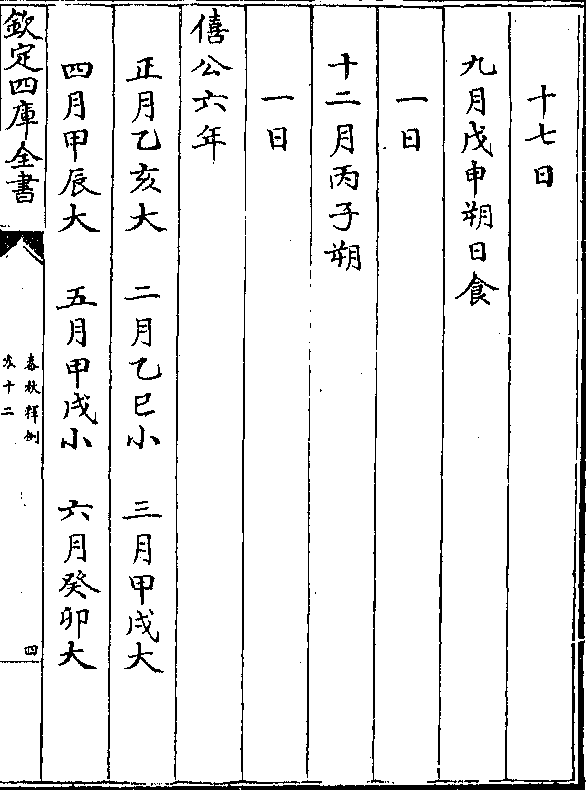 十七日
九月戊申朔日食
一日
十二月丙子朔
一日
僖公六年
正月乙亥大 二月乙巳小 三月甲戌大
四月甲辰大 五月甲戌小 六月癸卯大
欽定四庫全書
春秋釋例
卷十二
四